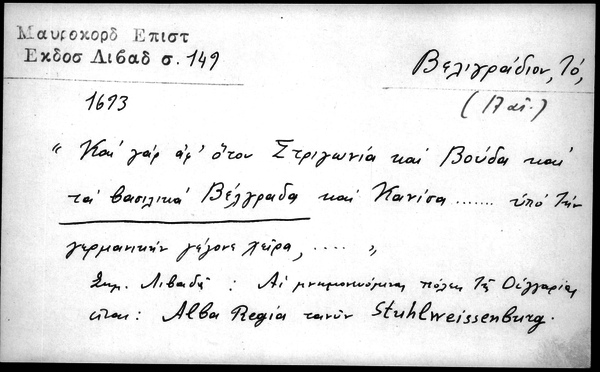 Μαυροκορδ Επιστ
Εκδοσ Λιβαδ σ. 149
Βελιγράδιον, Τό,
1693
" Και γάρ ἀφ' ὅτου Στριγωνία καί Βούδα καί
τά βασιλικά Βέλγραδα καί Κανίσα ....... ὑπό τήν
γερμανικήν γέγονε χεῖρα, ..... "
Σημ. Λιβαδῆ : Αἱ μνημονευόμεναι πόλεις τῆς Οὑγγαρίας
εἶναι: Alba Regia τανῦν Stuhlweissenburg.